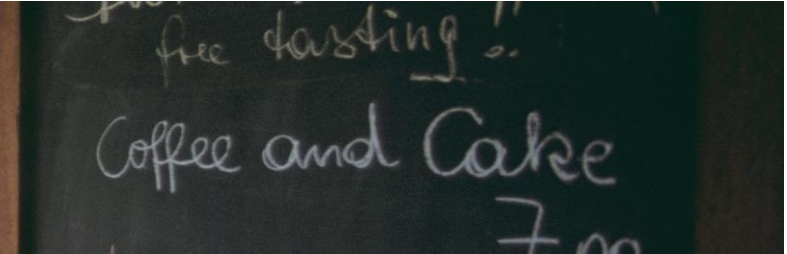 free tasting!!
Coffee and Cake
7